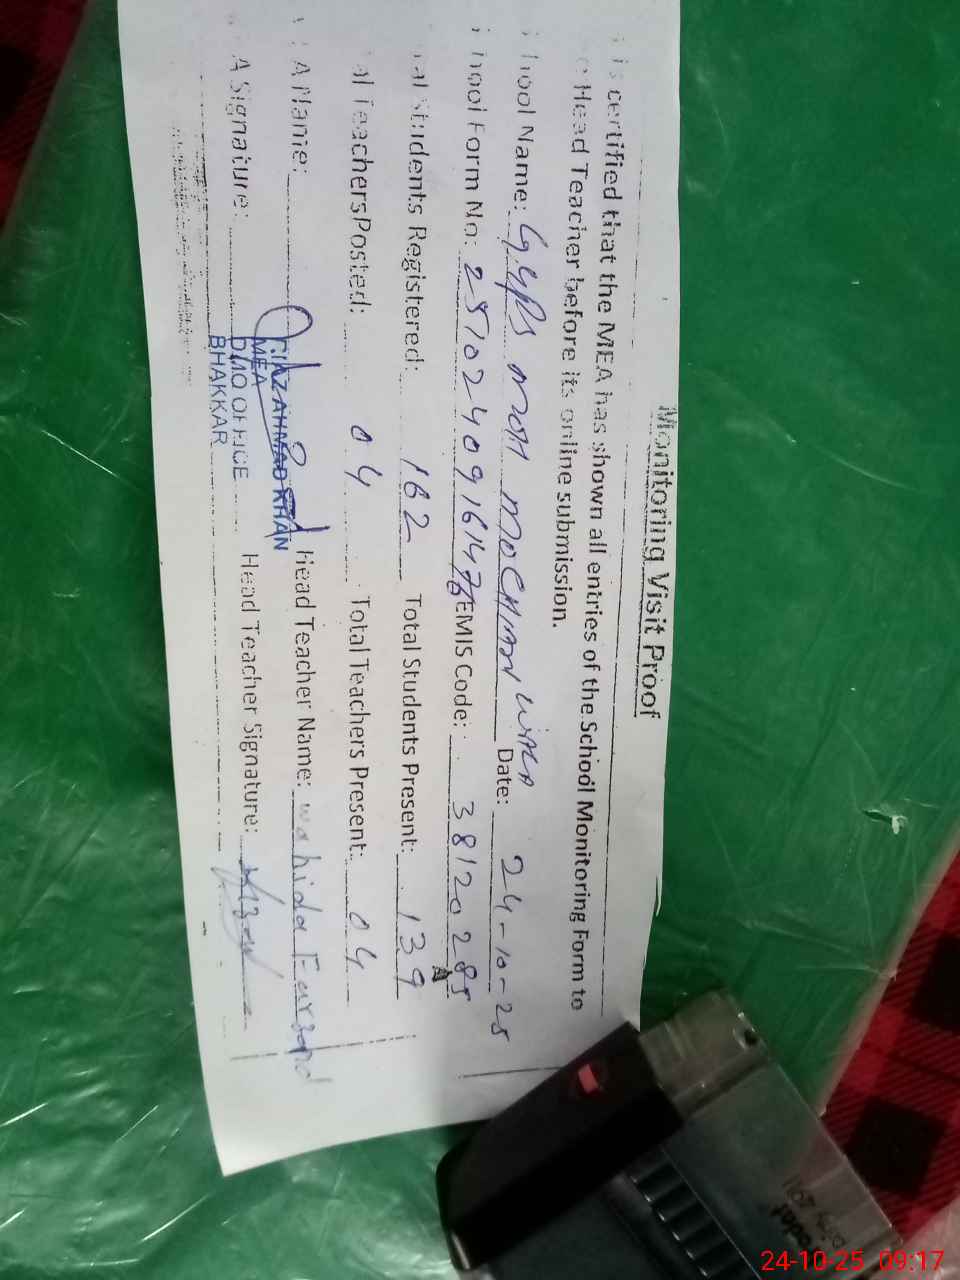 Monitoring Visit Proof
is certified that the MEA has shown all entries of the School Monitoring Form to
e Head Teacher before its online submission.
hool Name: GGPS MOH MOCHIAN WALA Date: 24-10-25
hool Form No: EMIS Code: 38120285
al Students Registered: 162 Total Students Present: 139
al TeachersPosted: 04 Total Teachers Present: 04
A Name: AHMAD KHAN Head Teacher Name: wahida Farzand
MEA
A Signature: DMO OFFICE Head Teacher Signature:
BHAKKAR
24-10-25 09:17